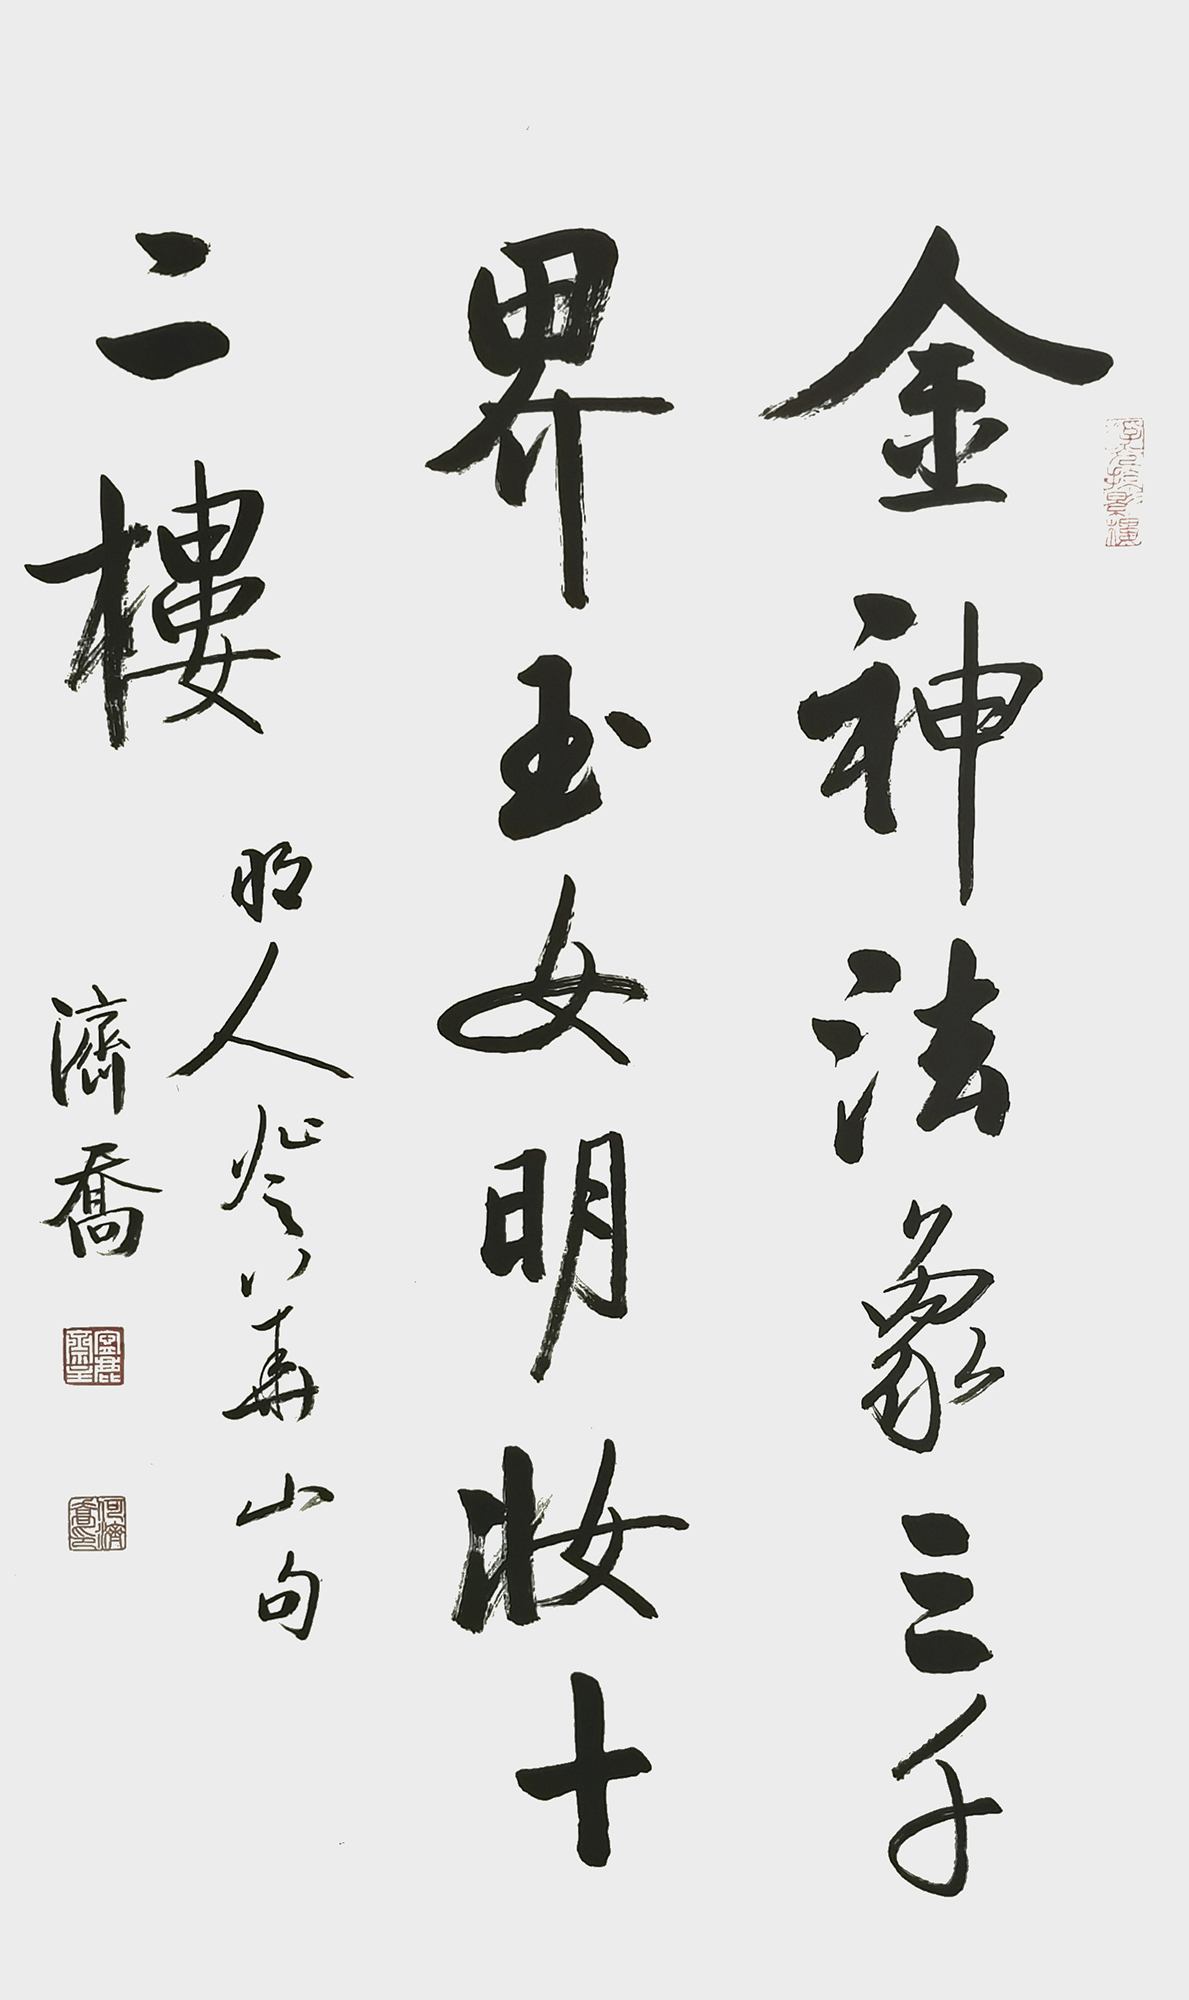 金神法象三千
界玉女明妝十
二樓
明人登華山句
濟喬